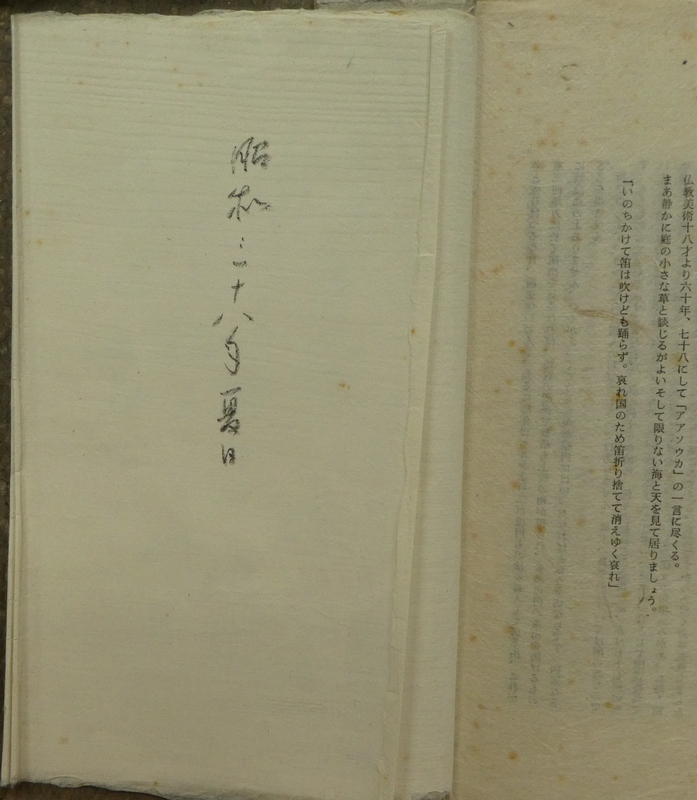 仏教美術十八才より六十年、七十八にして「アアソウカ」の一言に尽くる。
まあ静かに庭の小さな草と談じるがよいそして限りない海と天を見て居りましょう。
「いのちかけて笛は吹けども踊らず。哀れ国のため笛折り捨てて消えゆく哀れ」
昭和三十八年夏日